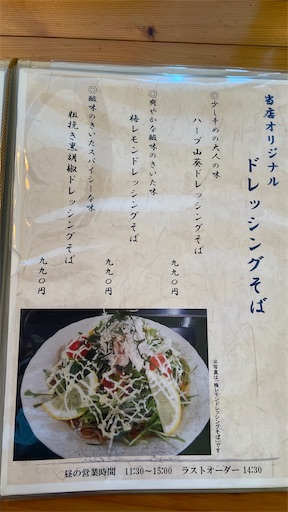 当店オリジナル
ドレッシングそば
◎少し辛めの大人の味
ハーブ山葵ドレッシングそば
九九〇円
◎爽やかな酸味のきいた味
梅レモンドレッシングそば
九九〇円
◎酸味のきいたスパイシーな味
粗挽き黒胡椒ドレッシングそば
九九〇円
※写真は、梅レモンドレッシングそばです
昼の営業時間 11:30～15:00 ラストオーダー 14:30